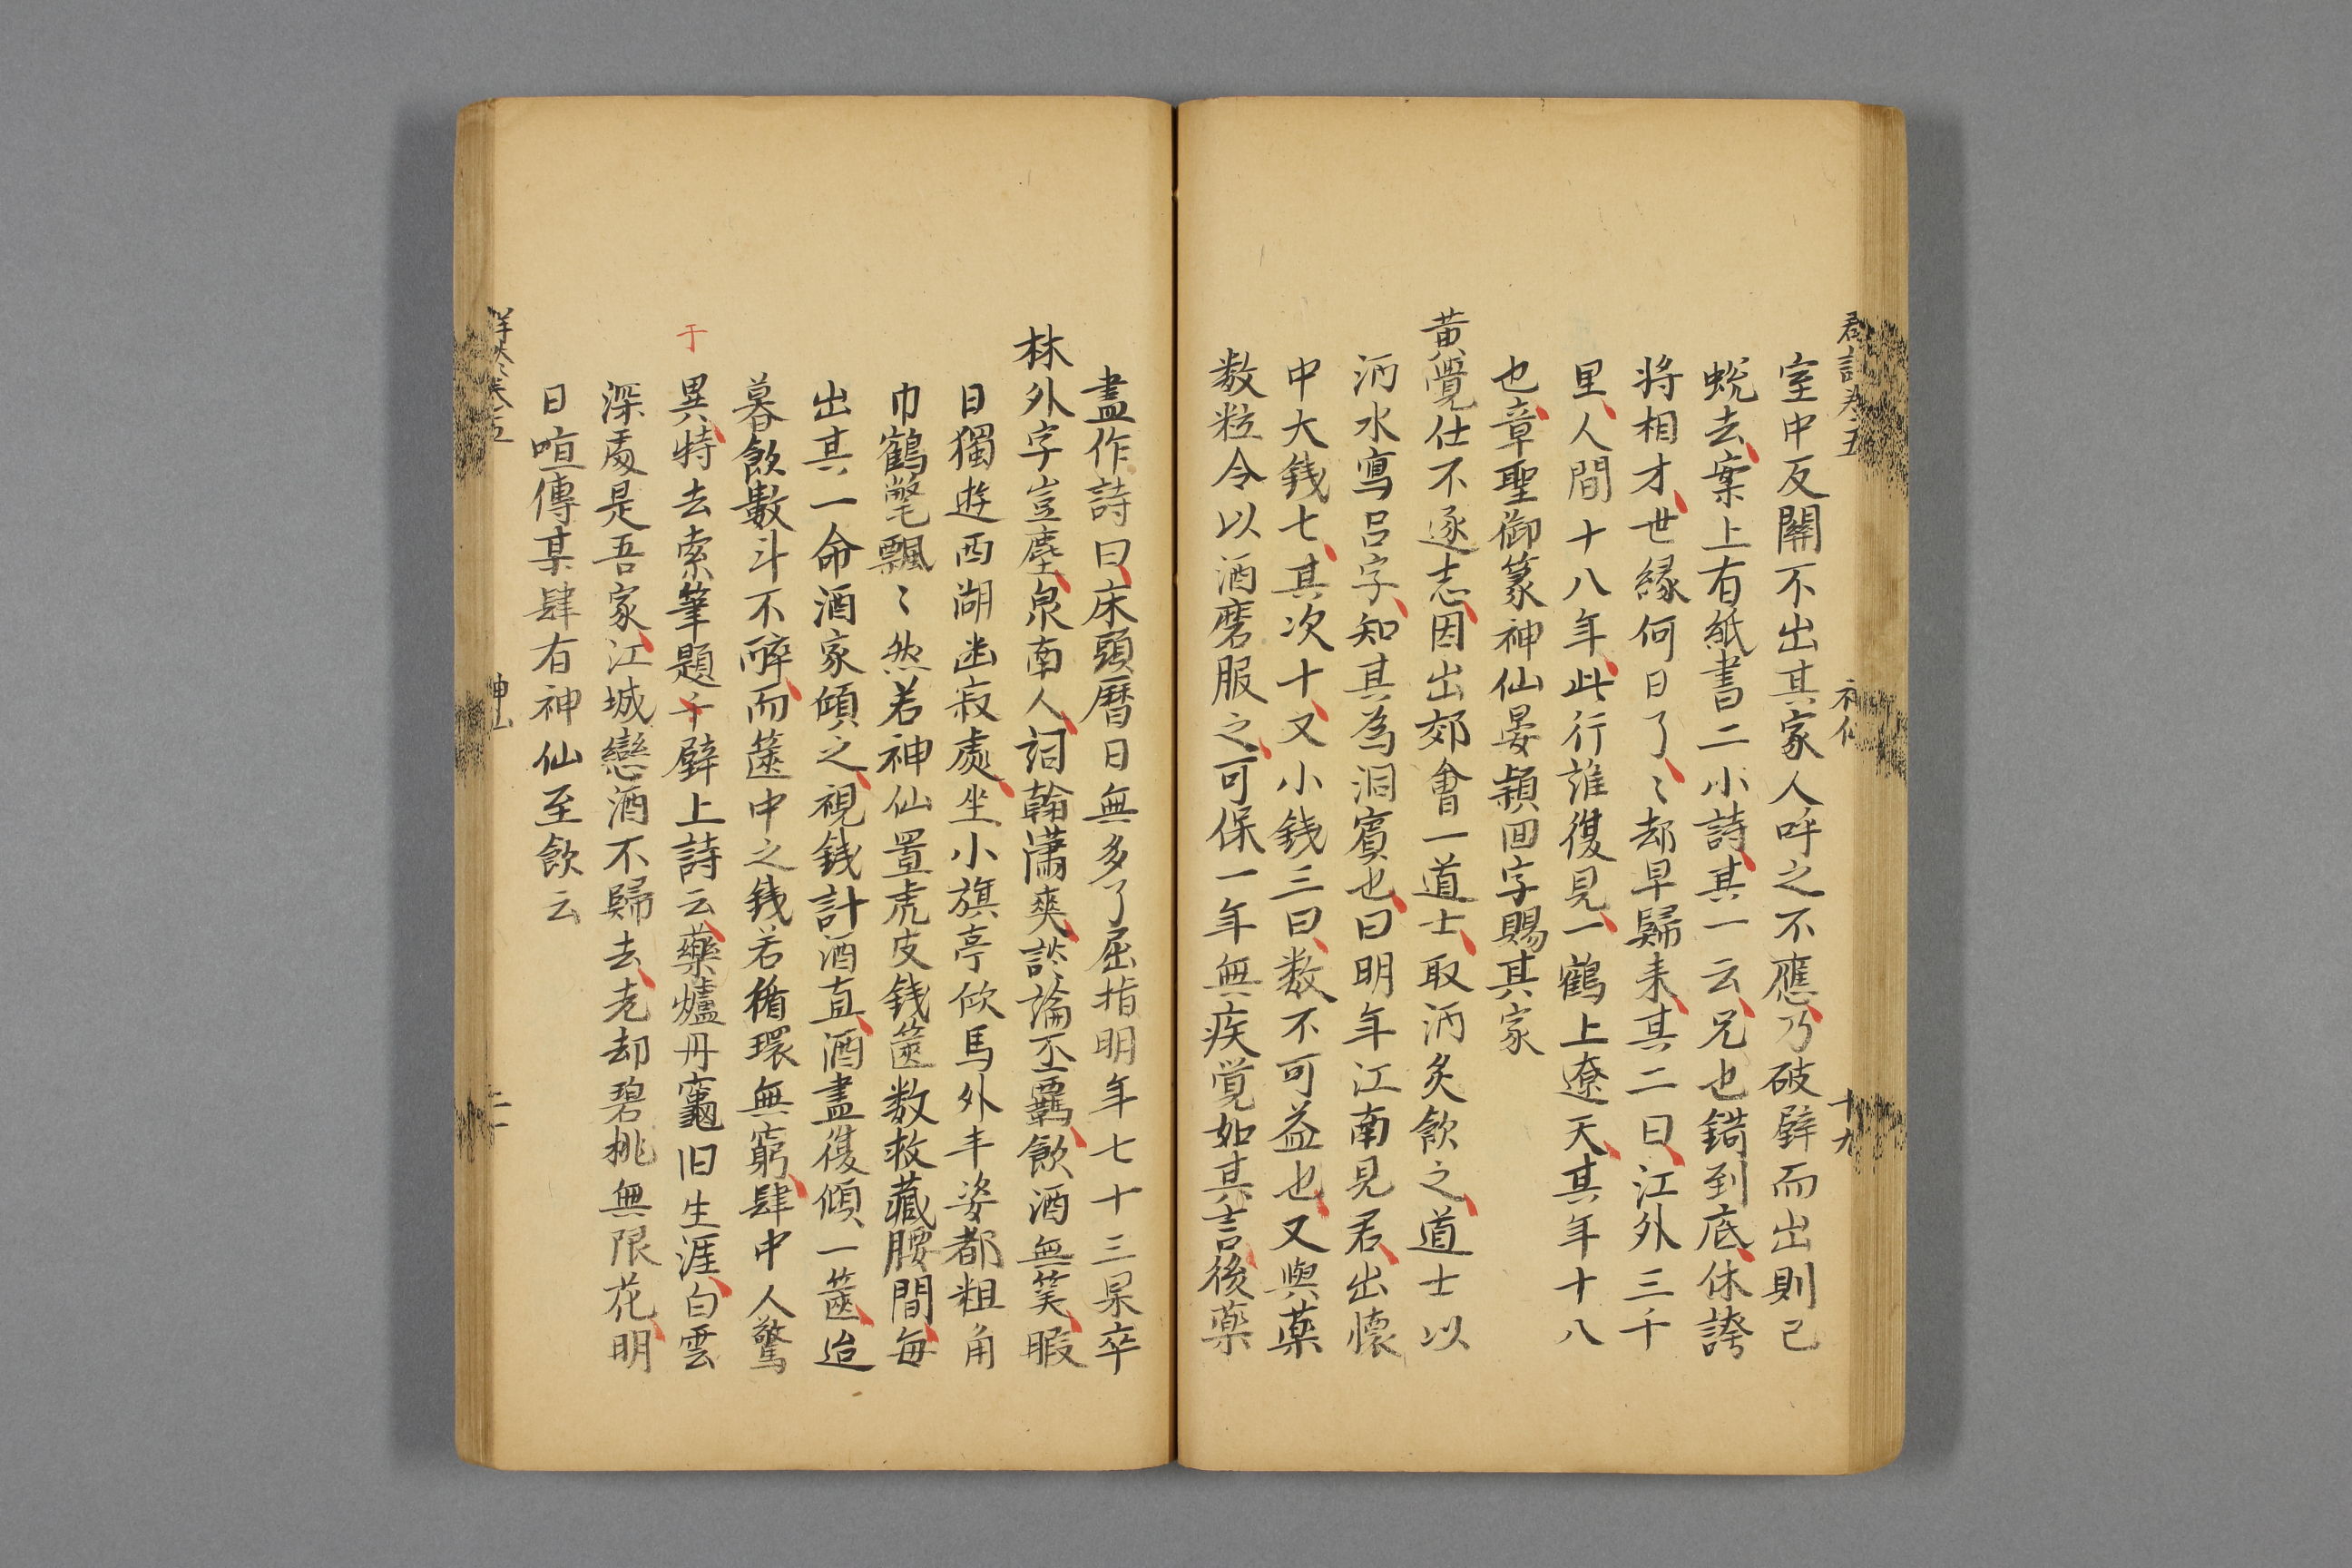 室中反關不出其家人呼之不應乃破壁而出則已
蛻去案上有紙書二小詩其一云兄也錯到底休誇
将相才世縁何日了〻却早歸来其二曰江外三千
里人間十八年此行誰復見一鶴上遼天其年十八
也章聖御篆神仙晏頴囬字賜其家
黄覺仕不遂志因出郊會一道士取沔炙飲之道士以
沔水寫吕字知其為洞賓也曰明年江南見君出懷
中大銭七其次十又小銭三曰数不可益也又與藥
数粒令以酒磨服之可保一年無疾覚如其言後藥
盡作詩曰床頭曆日無多了屈指明年七十三果卒
林外字豈塵泉南人詞翰瀟爽談論不羈飲酒無筭暇
日獨遊西湖幽寂處坐小旗亭飲馬外丰姿都粗角
巾鶴氅飄〻然若神仙置虎皮銭篋数救藏腰間每
出其一命酒家傾之視銭計酒直酒盡復傾一篋迨
暮飲數斗不醉而篋中之銭若循環無窮肆中人驚
異特去索筆題千壁上詩云藥爐丹竈旧生涯白雲
于
深處是吾家江城戀酒不歸去老却碧桃無限花明
日喧傳某肆有神仙至飲云
神仙
十九